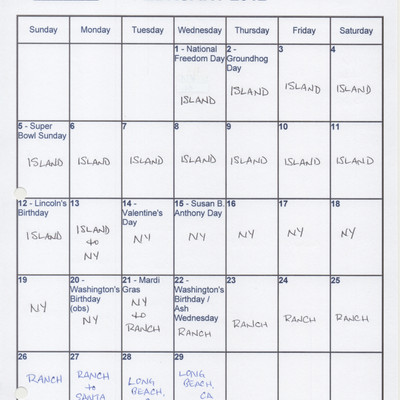 Sunday Monday Tuesday Wednesday Thursday Friday Saturday
1 - National Freedom Day
ISLAND
2 - Groundhog Day
ISLAND
3
ISLAND
4
ISLAND
5 - Super Bowl Sunday
ISLAND
6
ISLAND
7
ISLAND
8
ISLAND
9
ISLAND
10
ISLAND
11
ISLAND
12 - Lincoln's Birthday
ISLAND
13
ISLAND
to
NY
14 - Valentine's Day
NY
15 - Susan B. Anthony Day
NY
16
NY
17
NY
18
NY
19
NY
20 - Washington's Birthday (obs)
NY
21 - Mardi Gras
NY
to
RANCH
22 - Washington's Birthday / Ash Wednesday
RANCH
23
RANCH
24
RANCH
25
RANCH
26
RANCH
27
RANCH
to
SANTA
28
LONG
BEACH,
29
LONG
BEACH,
CA